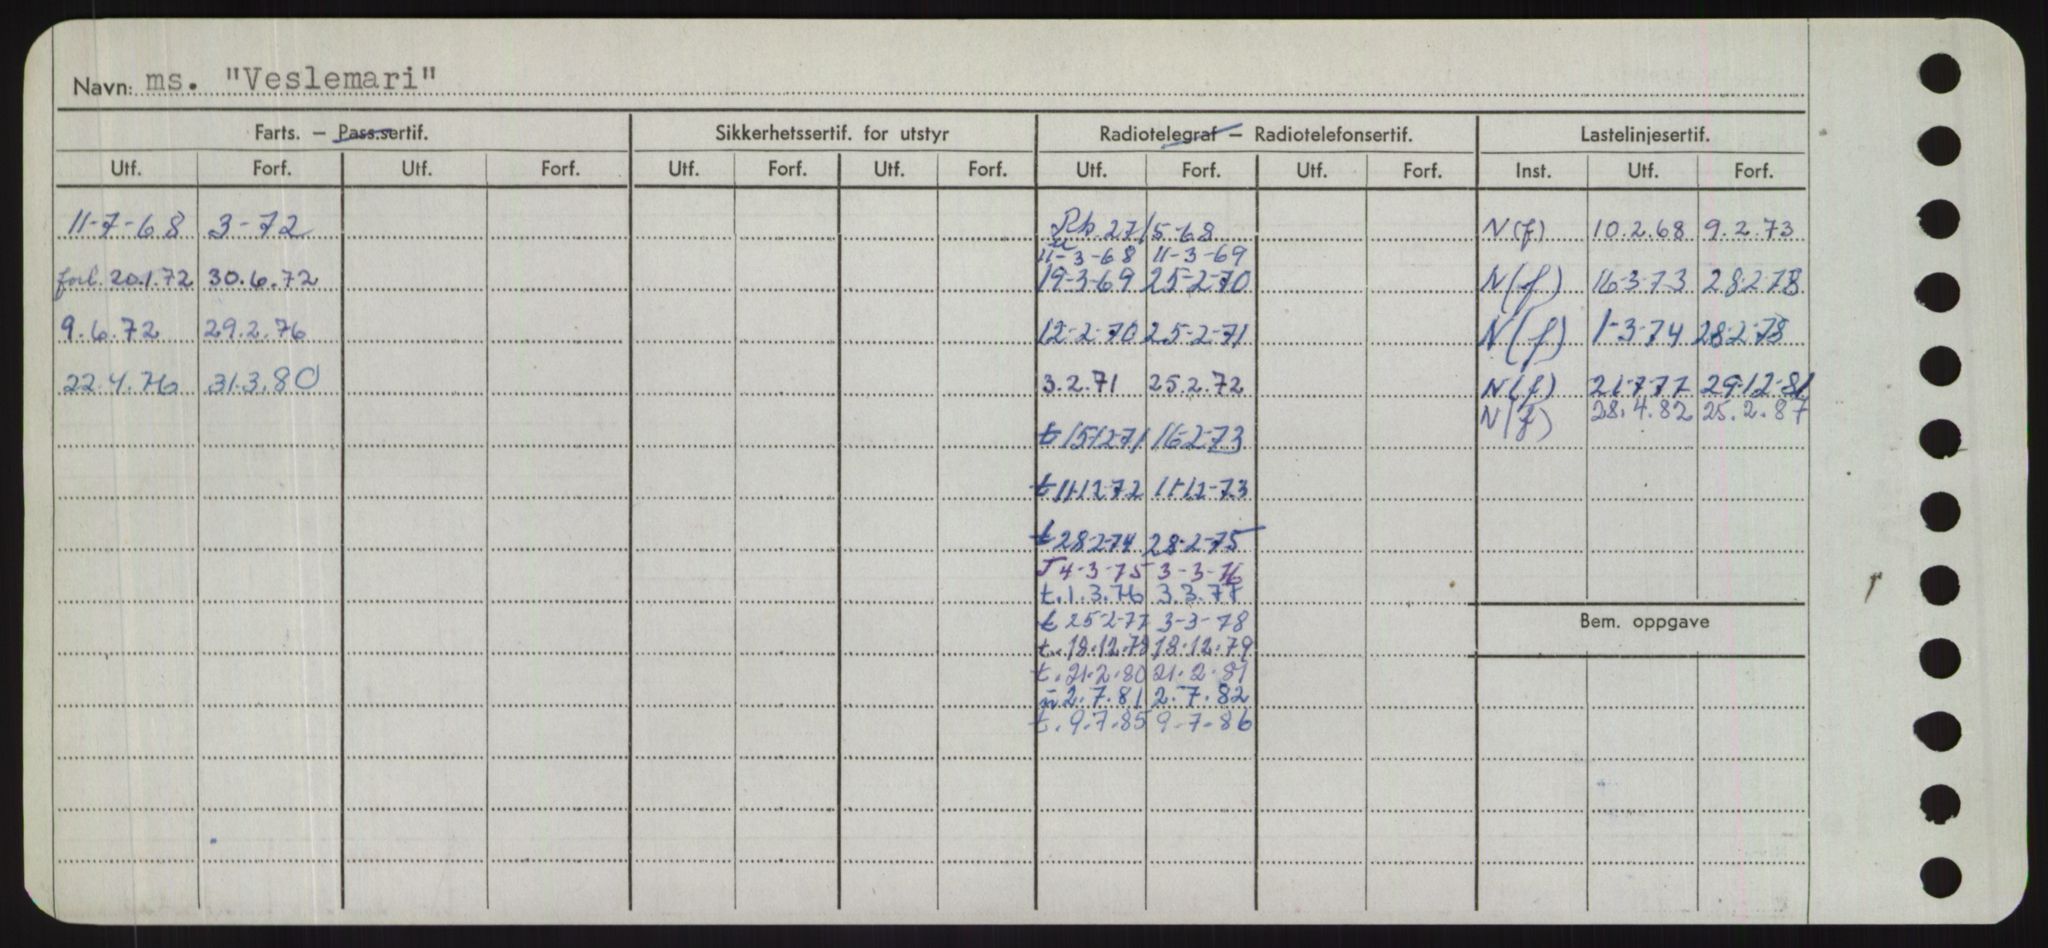 Navn: ms. "Veslemari"
Farts. – Pass.sertif. Sikkerhetssertif. for utstyr Radiotelegraf – Radiotelefonsertif. Lastelinjesertif.
Utf. Forf. Utf. Forf. Utf. Forf. Utf. Forf. Utf. Forf. Utf. Forf. Inst. Utf. Forf.
11-7-68 3-72 27/5-68 N(f) 10.2.68 9.2.73
11-3-68 11-3-69
forl. 20.1.72 30.6.72 19-3-69 25-2-70 N(f) 16-3-73 28-2-78
9.6.72 29.2.76 12-2-70 25-2-71 N(f) 1-3-74 28-2-78
22.4.76 31.3.80 3.2.71 25.2.72 N(f) 21-7-77 29-12-81
N(f) 28.4.82 25.2.87
t 15-12-71 16-2-73
t 11-12-72 11-12-73
t 28-2-74 28-2-75
T 4-3-75 3-3-76
t. 1.3.76 3.3.77
t 25-2-77 3-3-78
t. 18.12.78 18.12.79
t. 21.2.80 21.2.81
2.7.81 2.7.82
t. 9.7.85 9-7-86
Bem. oppgave